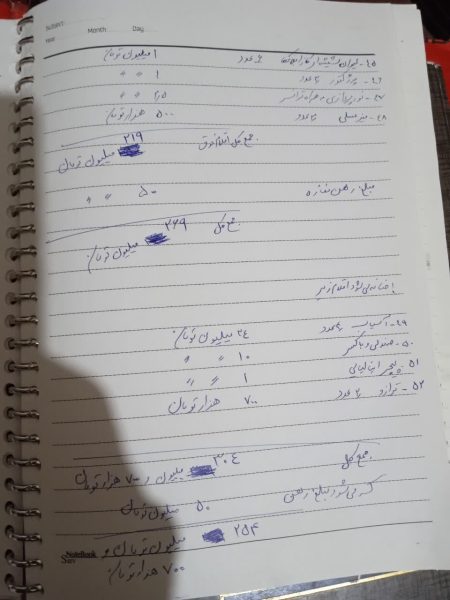 SUBJECT:
Year Month Day
۴۵- لیوان شیشه‌ای عدد ۱ میلیون تومان
۴۶- پرژکتور ۲ عدد ۱ " "
۴۷- نورپردازی به همراه ترانس ۲/۵ " "
۴۸- میز عسلی ۲ عدد ۵۰۰ هزار تومان
جمع کل اقلام فوق ۲۱۹ میلیون تومان
مبلغ رهن مغازه ۵۰ " "
جمع کل ۲۶۹ میلیون تومان
اضافه می‌شود اقلام زیر
۴۹- اکسپاب عدد ۲۴ میلیون تومان
۵۰- صندلی ۱۰ " "
۵۱- ایتالیایی ۱ " "
۵۲- ترازو ۲ عدد ۷۰۰ هزار تومان
جمع کل ۳۰۴ میلیون و ۷۰۰ هزار تومان
کسر می‌شود مبلغ رهن ۵۰ میلیون تومان
۲۵۴ میلیون تومان و
۷۰۰ هزار تومان
NoteBook